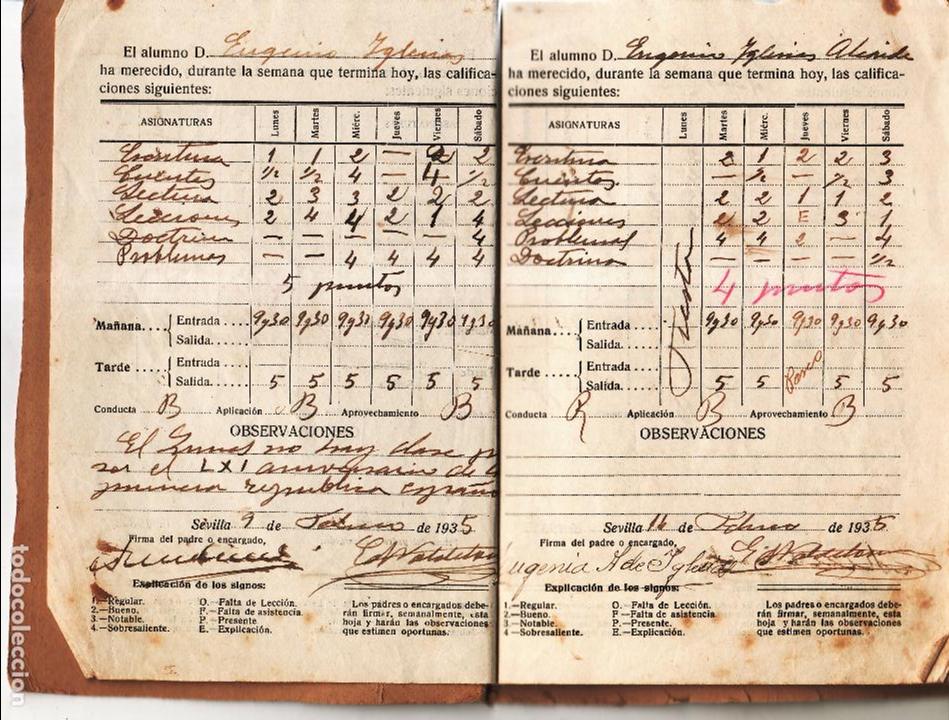 El alumno D. Eugenio Yglesias
ha merecido, durante la semana que termina hoy, las califica-
ciones siguientes:
ASIGNATURAS Lunes Martes Miérc. Jueves Viernes Sábado
Escritura 1 1 2 — 2 2
Cuentas 1/2 1/2 4 — 4 1/2
Lectura 2 3 3 2 2 2
Lecciones 2 4 4 2 1 4
Doctrina — — — — — 4
Problemas — — 4 4 4 4
5 puntos
Mañana.... Entrada .... 9y30 9y30 9y30 9y30 9y30 9y30
Salida.....
Tarde .... Entrada ....
Salida..... 5 5 5 5 5 5
Conducta B Aplicación B Aprovechamiento B
OBSERVACIONES
El Lunes no hay clase p
ser el LXI aniversario de l
primera republica españo
Sevilla 9 de Febrero de 1935
Firma del padre o encargado,
Explicación de los signos:
1.—Regular. O.—Falta de Lección.
2.—Bueno. F.—Falta de asistencia.
3.—Notable. P.—Presente
4.—Sobresaliente. E.—Explicación.
Los padres o encargados debe-
rán firmar, semanalmente, esta
hoja y harán las observaciones
que estimen oportunas.
El alumno D. Eugenio Yglesias
ha merecido, durante la semana que termina hoy, las califica-
ciones siguientes:
ASIGNATURAS Lunes Martes Miérc. Jueves Viernes Sábado
Escritura 2 1 2 2 3
Cuentas — 1/2 — 1/2 3
Lectura 2 2 1 1 2
Lecciones 2 2 E 3 1
Problemas 4 4 2 — 4
Doctrina — — — — 1/2
Fiesta
4 puntos
Mañana.... Entrada .... 9y30 9y30 9y30 9y30 9y30
Salida.....
Tarde .... Entrada ....
Salida..... 5 5 5 5
Conducta R Aplicación B Aprovechamiento B
OBSERVACIONES
Sevilla 16 de Febrero de 1935
Firma del padre o encargado,
Eugenia A de Yglesias
Explicación de los signos:
1.—Regular. O.—Falta de Lección.
2.—Bueno. F.—Falta de asistencia
3.—Notable. P.—Presente.
4.—Sobresaliente. E.—Explicación.
Los padres o encargados debe-
rán firmar, semanalmente, esta
hoja y harán las observaciones
que estimen oportunas.
todocoleccion